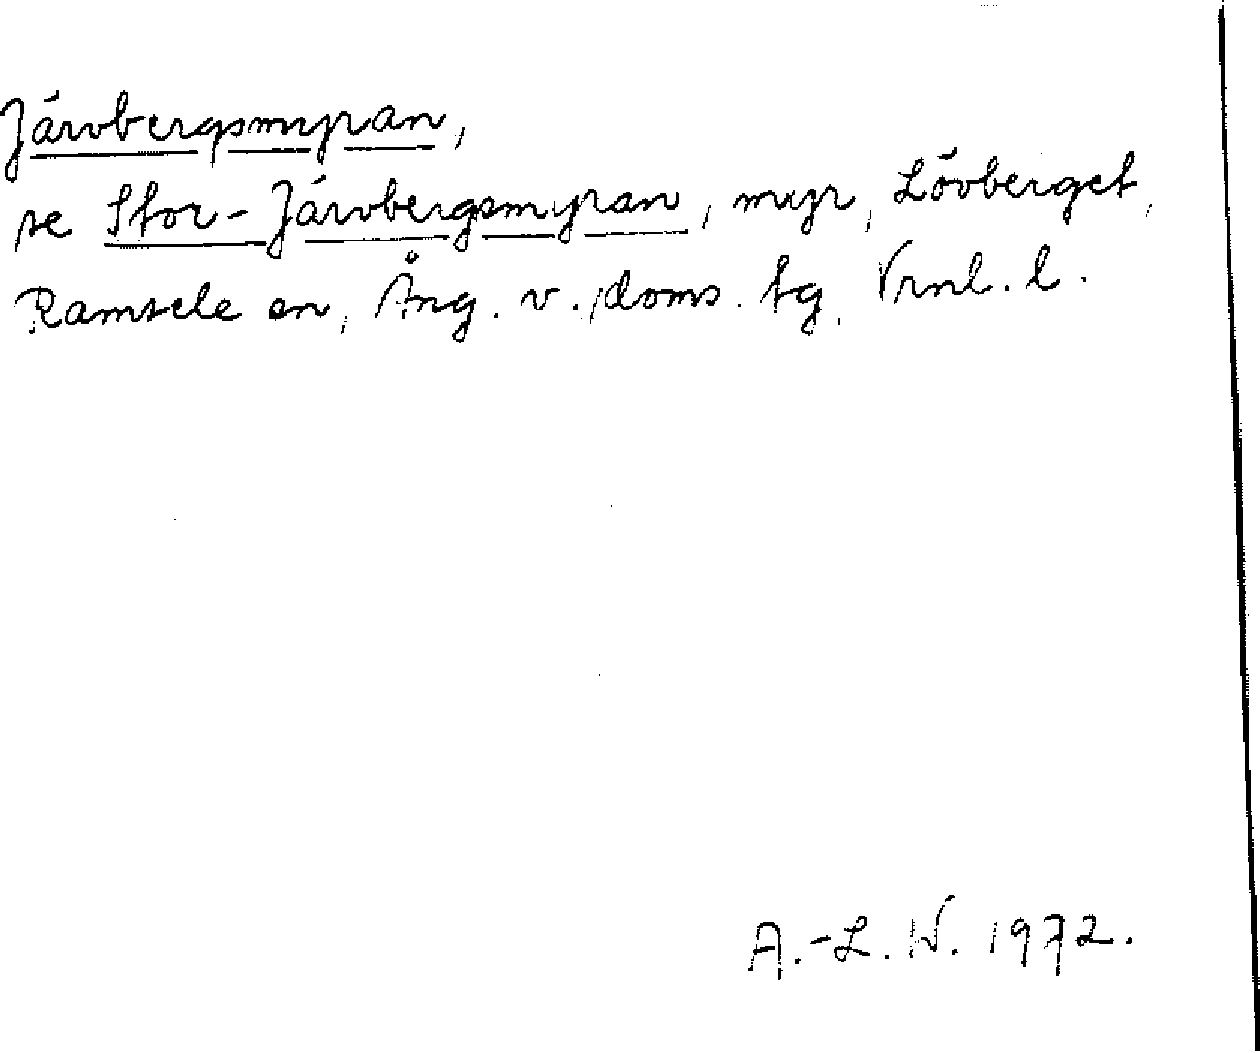 Järvbergsmyran,
se Stor-Järvbergsmyran, myr, Lövberget,
Ramsele sn, Ång. v. doms. tg, Vrnl. l.
A.-L. W. 1972.